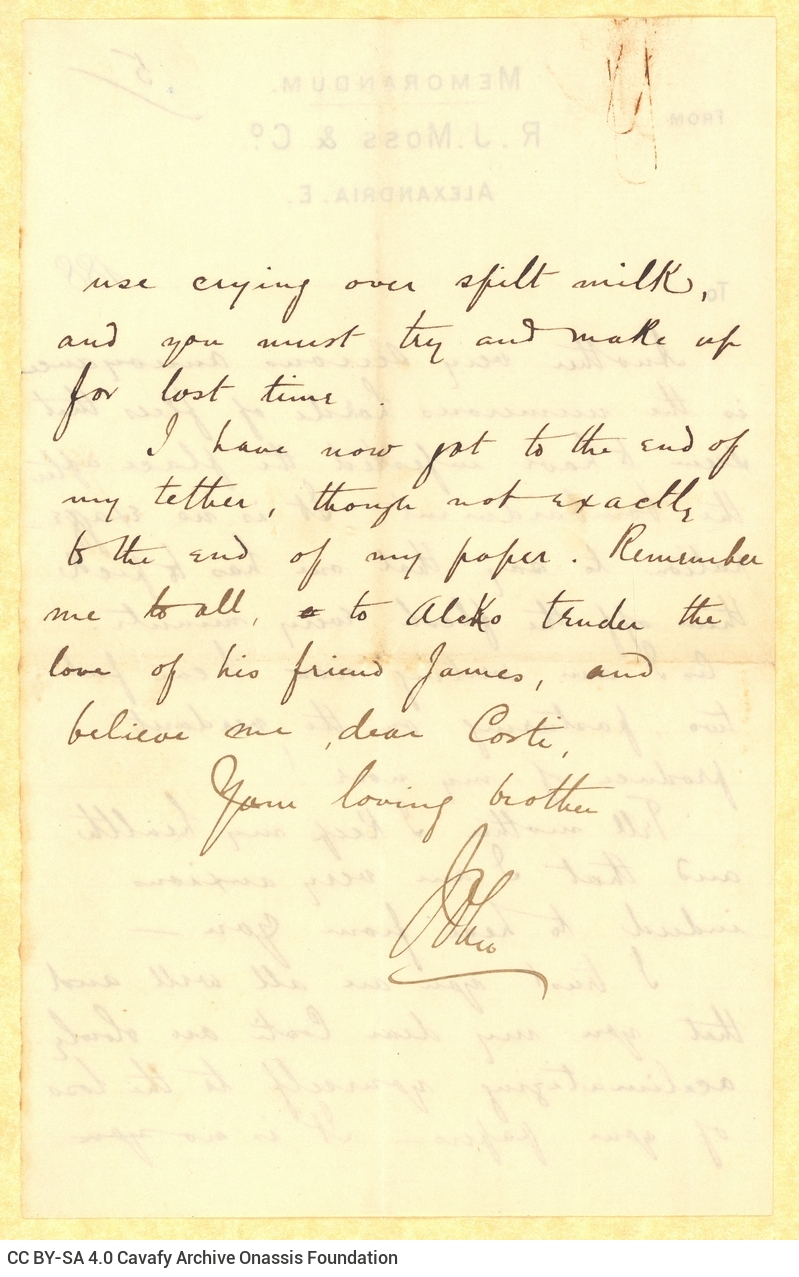 use crying over spilt milk,
and you must try and make up
for lost time.
I have now got to the end of
my tether, though not exactly
to the end of my paper. Remember
me to all, to Aleko tender the
love of his friend James, and
believe me, dear Costi,
Your loving brother
John
CC BY-SA 4.0 Cavafy Archive Onassis Foundation